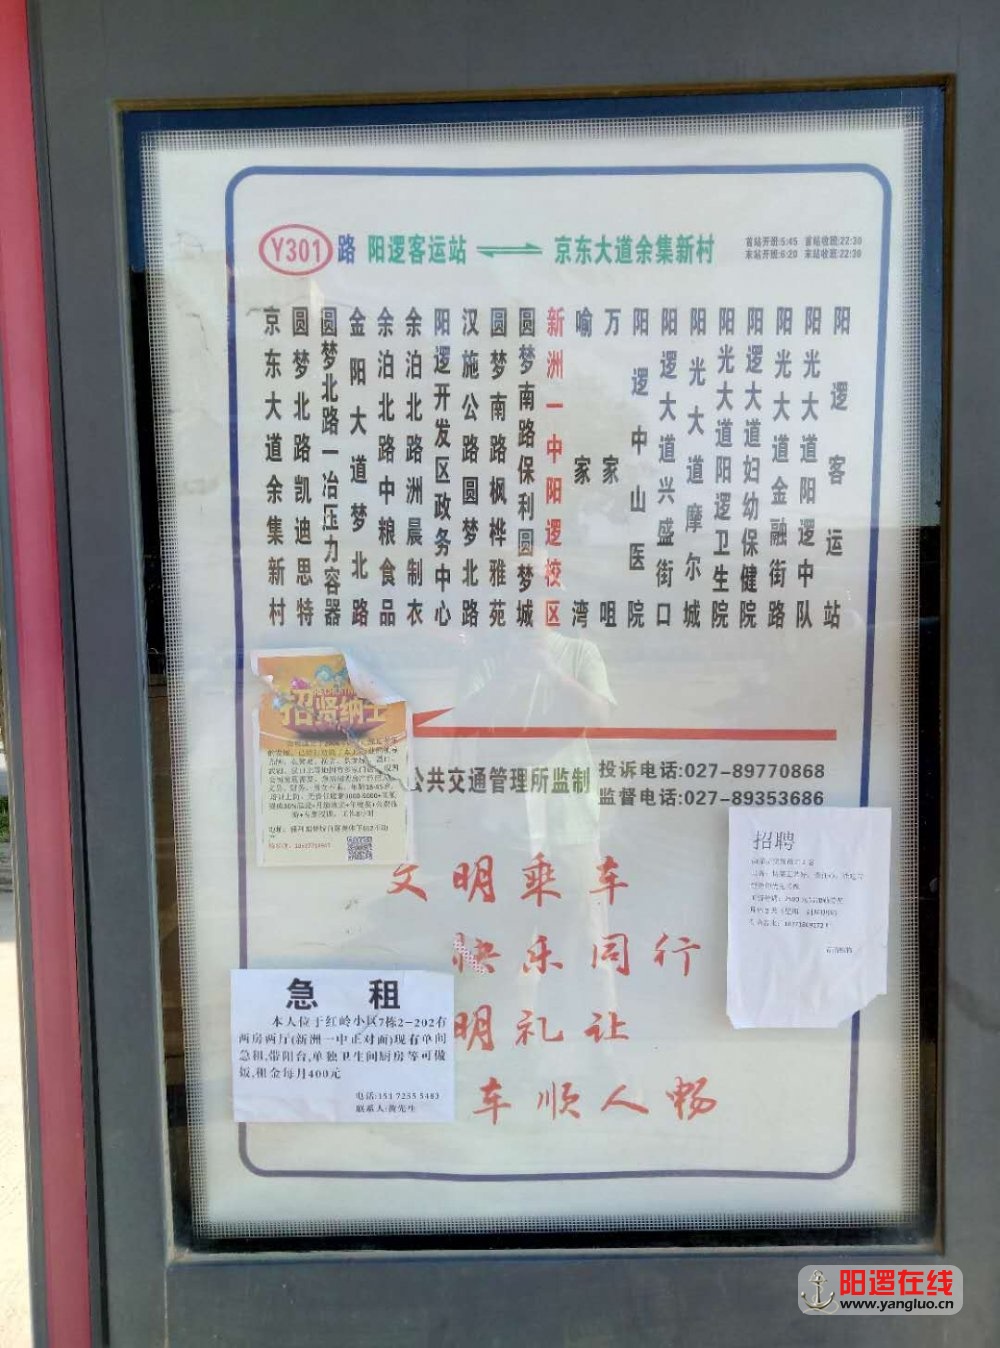 Y301 路 阳逻客运站 京东大道余集新村
首站开班:5:45 首站收班:22:30
末站开班:6:20 末站收班:22:30
京东大道余集新村
圆梦北路凯迪思特
圆梦北路一冶压力容器
金阳大道梦北路
余泊北路中粮食品
余泊北路洲晨制衣
阳逻开发区政务中心
汉施公路圆梦北路
圆梦南路枫桦雅苑
圆梦南路保利圆梦城
新洲一中阳逻校区
喻家湾
万家咀
阳逻中山医院
阳逻大道兴盛街口
阳光大道摩尔城
阳光大道阳逻卫生院
阳逻大道妇幼保健院
阳光大道金融街路
阳光大道阳逻中队
阳逻客运站
招贤纳士
公共交通管理所监制
投诉电话:027-89770868
监督电话:027-89353686
招聘
文明乘车
快乐同行
明礼让
车顺人畅
急 租
本人位于红岭小区7栋2-202有
两房两厅(新洲一中正对面)现有单间
急租,带阳台,单独卫生间厨房等可做
饭,租金每月400元
电话:151 7235 5483
联系人:黄先生
阳逻在线
www.yangluo.cn